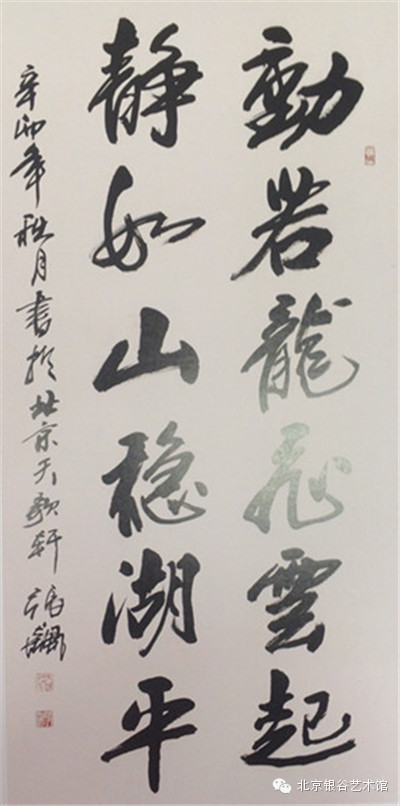 動若龍飛雲起
静如山穏湖平
辛卯年秋月書於北京天歌軒
北京银谷艺术馆